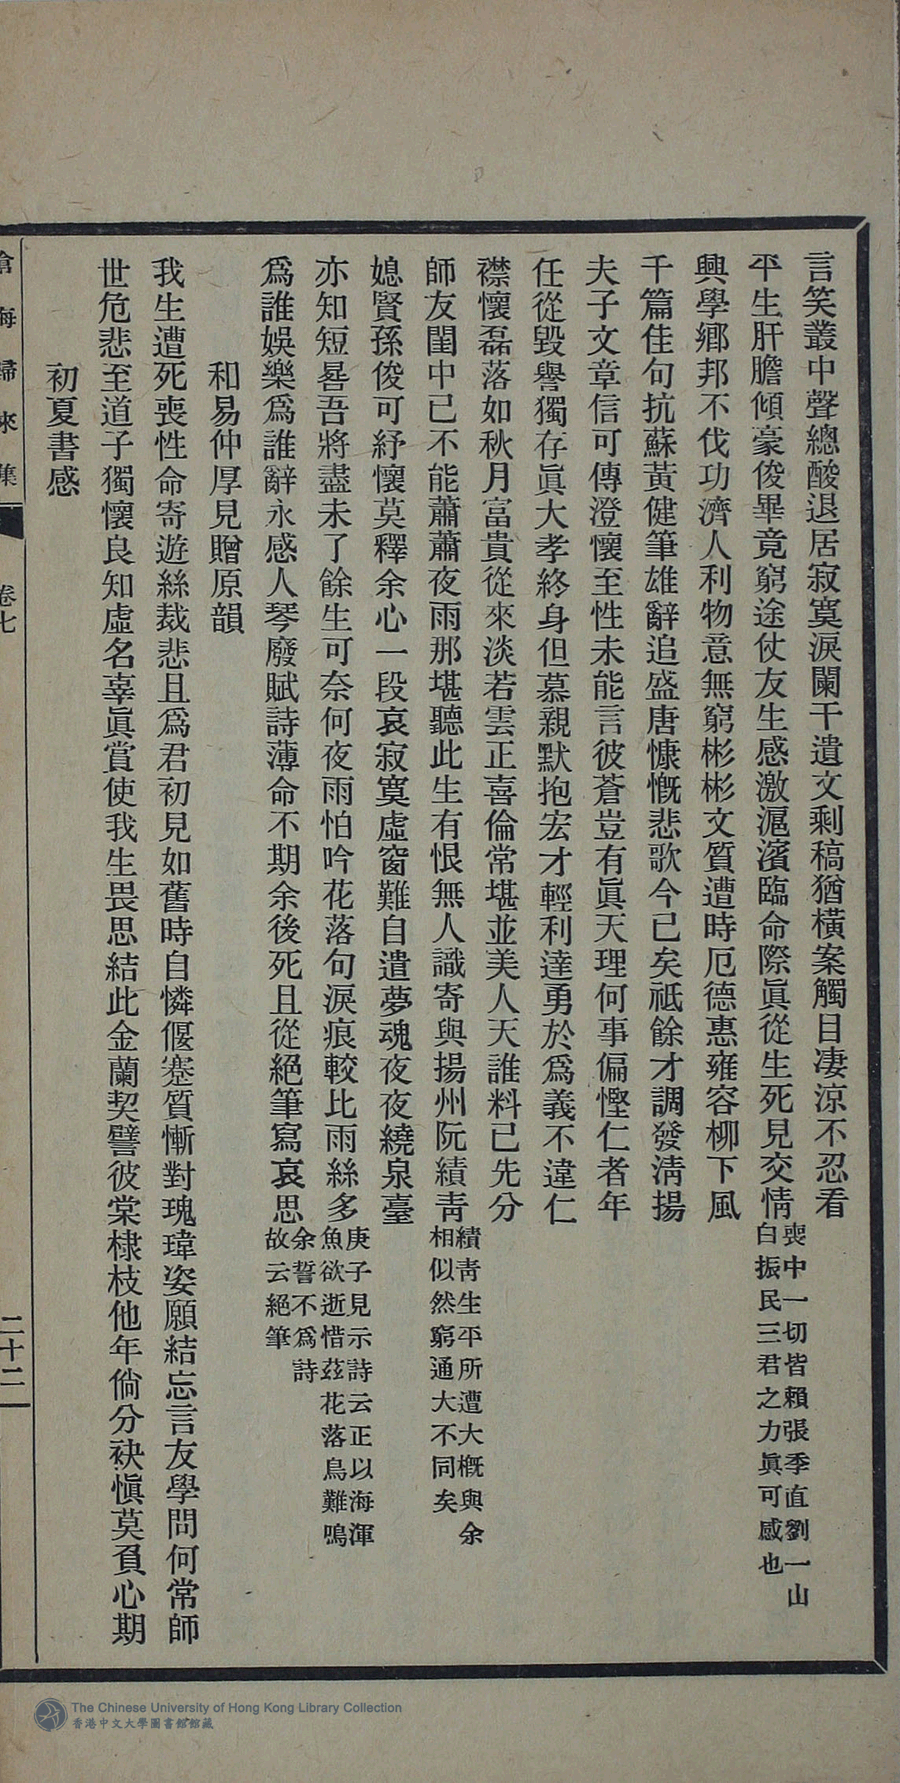 言笑叢中聲總酸退居寂寞淚闌干遺文剩稿猶橫案觸目凄涼不忍看
平生肝膽傾豪俊畢竟窮途仗友生感激滬濱臨命際眞從生死見交情
喪中一切皆賴張季直劉一山
白振民三君之力眞可感也
興學鄉邦不伐功濟人利物意無窮彬彬文質遭時厄德惠雍容柳下風
千篇佳句抗蘇黃健筆雄辭追盛唐慷慨悲歌今已矣祗餘才調發清揚
夫子文章信可傳澄懷至性未能言彼蒼豈有眞天理何事偏慳仁者年
任從毀譽獨存眞大孝終身但慕親默抱宏才輕利達勇於爲義不違仁
襟懷磊落如秋月富貴從來淡若雲正喜倫常堪並美人天誰料已先分
師友閨中已不能蕭蕭夜雨那堪聽此生有恨無人識寄與揚州阮績青
績青生平所遭大概與余
相似然窮通大不同矣
媳賢孫俊可紓懷莫釋余心一段哀寂寞虛窗難自遣夢魂夜夜繞泉臺
亦知短晷吾將盡未了餘生可奈何夜雨怕吟花落句淚痕較比雨絲多
庚子見示詩云正以海渾
魚欲逝惜茲花落鳥難鳴
爲誰娛樂爲誰辭永感人琴廢賦詩薄命不期余後死且從絕筆寫哀思
余誓不爲詩
故云絕筆
和易仲厚見贈原韻
我生遭死喪性命寄遊絲裁悲且爲君初見如舊時自憐偃蹇質慚對瑰瑋姿願結忘言友學問何常師
世危悲至道子獨懷良知虛名辜眞賞使我生畏思結此金蘭契譬彼棠棣枝他年倘分袂愼莫負心期
初夏書感
滄海歸來集
卷七
二十二
The Chinese University of Hong Kong Library Collection
香港中文大學圖書館館藏